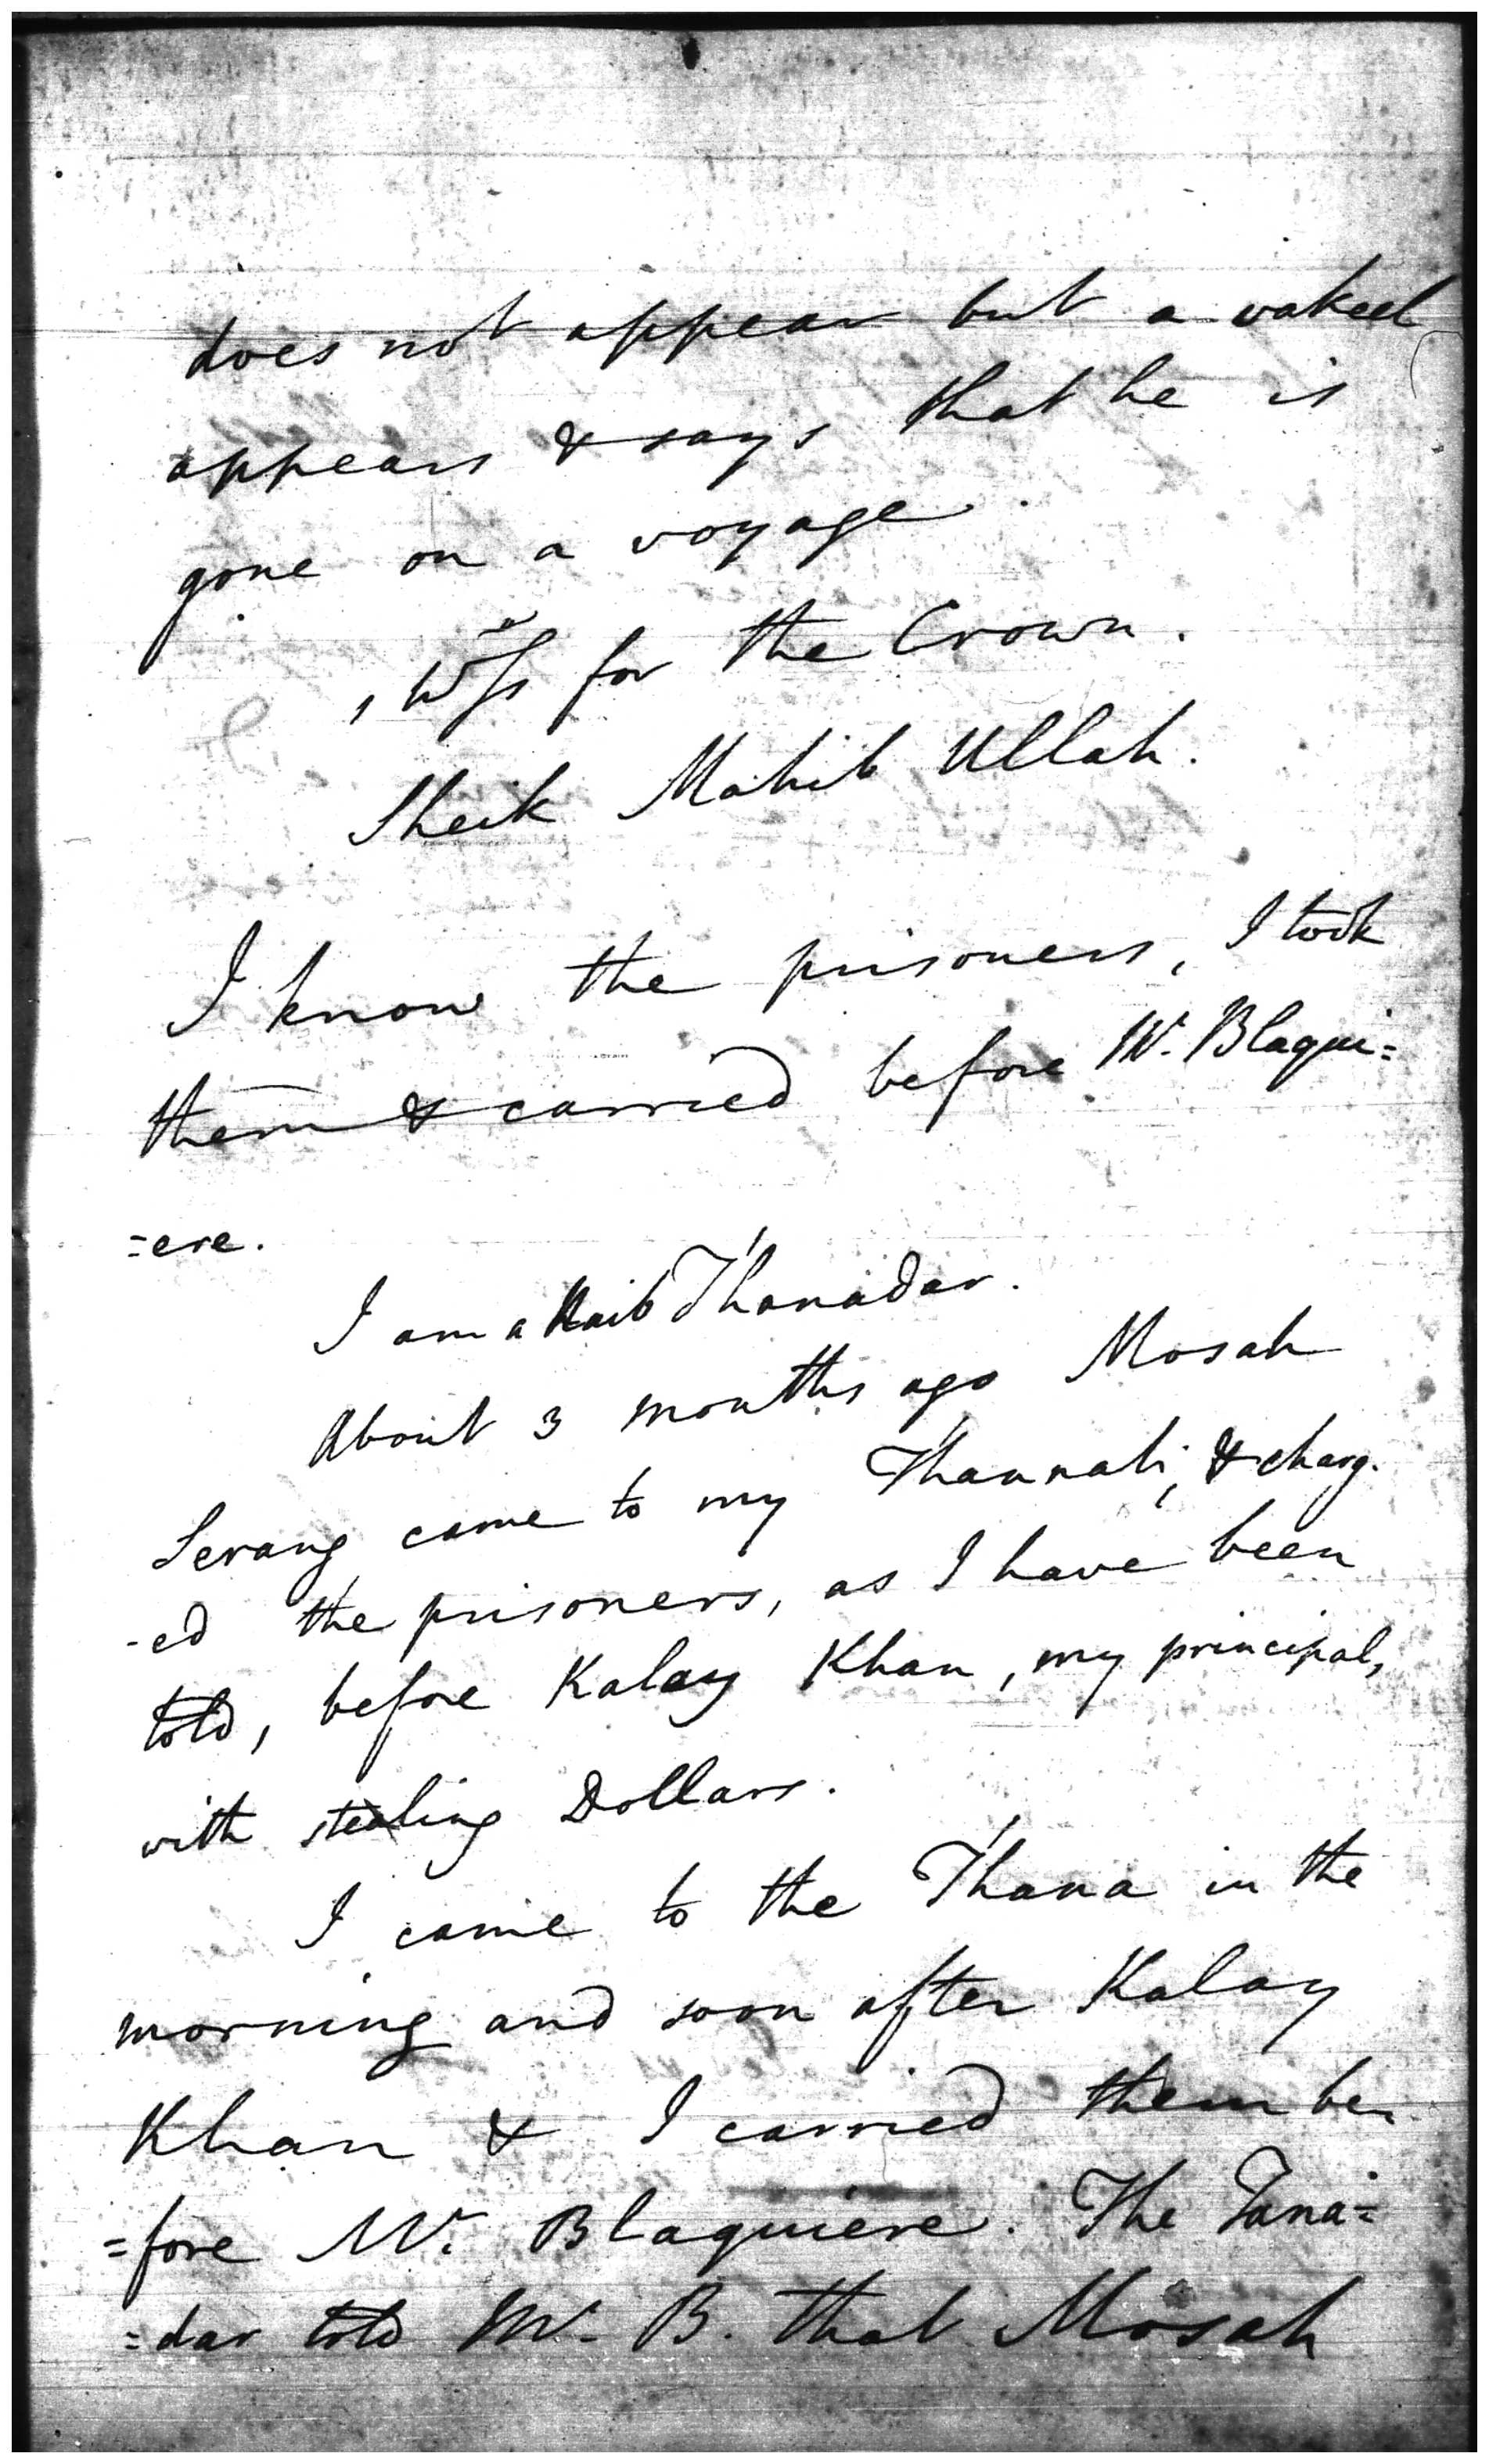 does not appear but a vakeel
appears & says that he is
gone on a voyage.
for the Crown.
Sheik Mohib Ullah.
I know the prisoners, I took
them & carried before Mr. Blaqui=
=ere.
I am a Naib Thanadar.
About 3 months ago Mosah
Serang came to my Thannah, & charg-
-ed the prisoners, as I have been
told, before Kalay Khan, my principal,
with stealing Dollars.
I came to the Thana in the
morning and soon after Kalay
Khan & I carried them be-
=fore Mr. Blaquiere. The Tana=
=dar told Mr. B. that Mosah